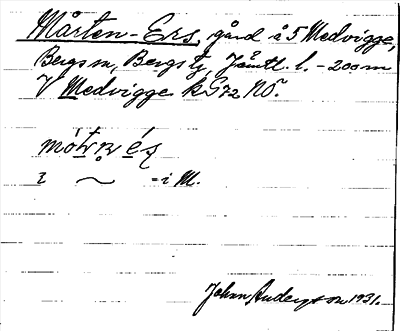 Mårten-Ers, gård å 5 Medvigge,
Bergs sn, Bergs tg, Jämtl. l. - 200 m
V Medvigge k S 72 NÖ.
i ~ = i M.
Johan Anderson 1931.